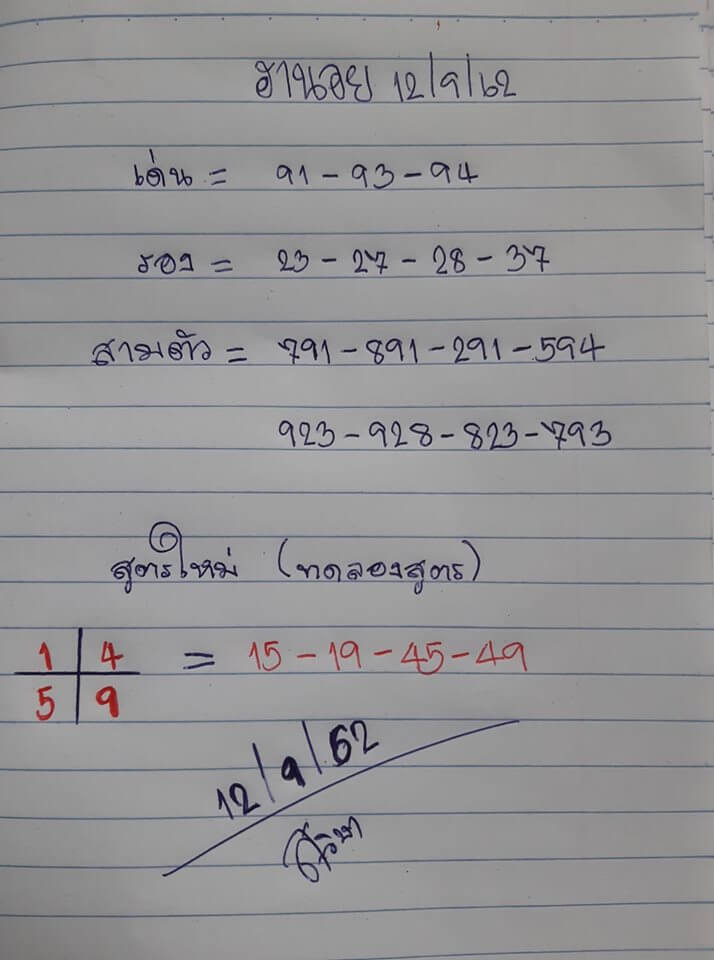 ฮานอย 12/9/62
เด่น = 91 - 93 - 94
รอง = 23 - 27 - 28 - 37
สามตัว = 791 - 891 - 291 - 594
923 - 928 - 823 - 793
สูตรใหม่ (ทดลองสูตร)
1 4 = 15 - 19 - 45 - 49
5 9
12/9/62